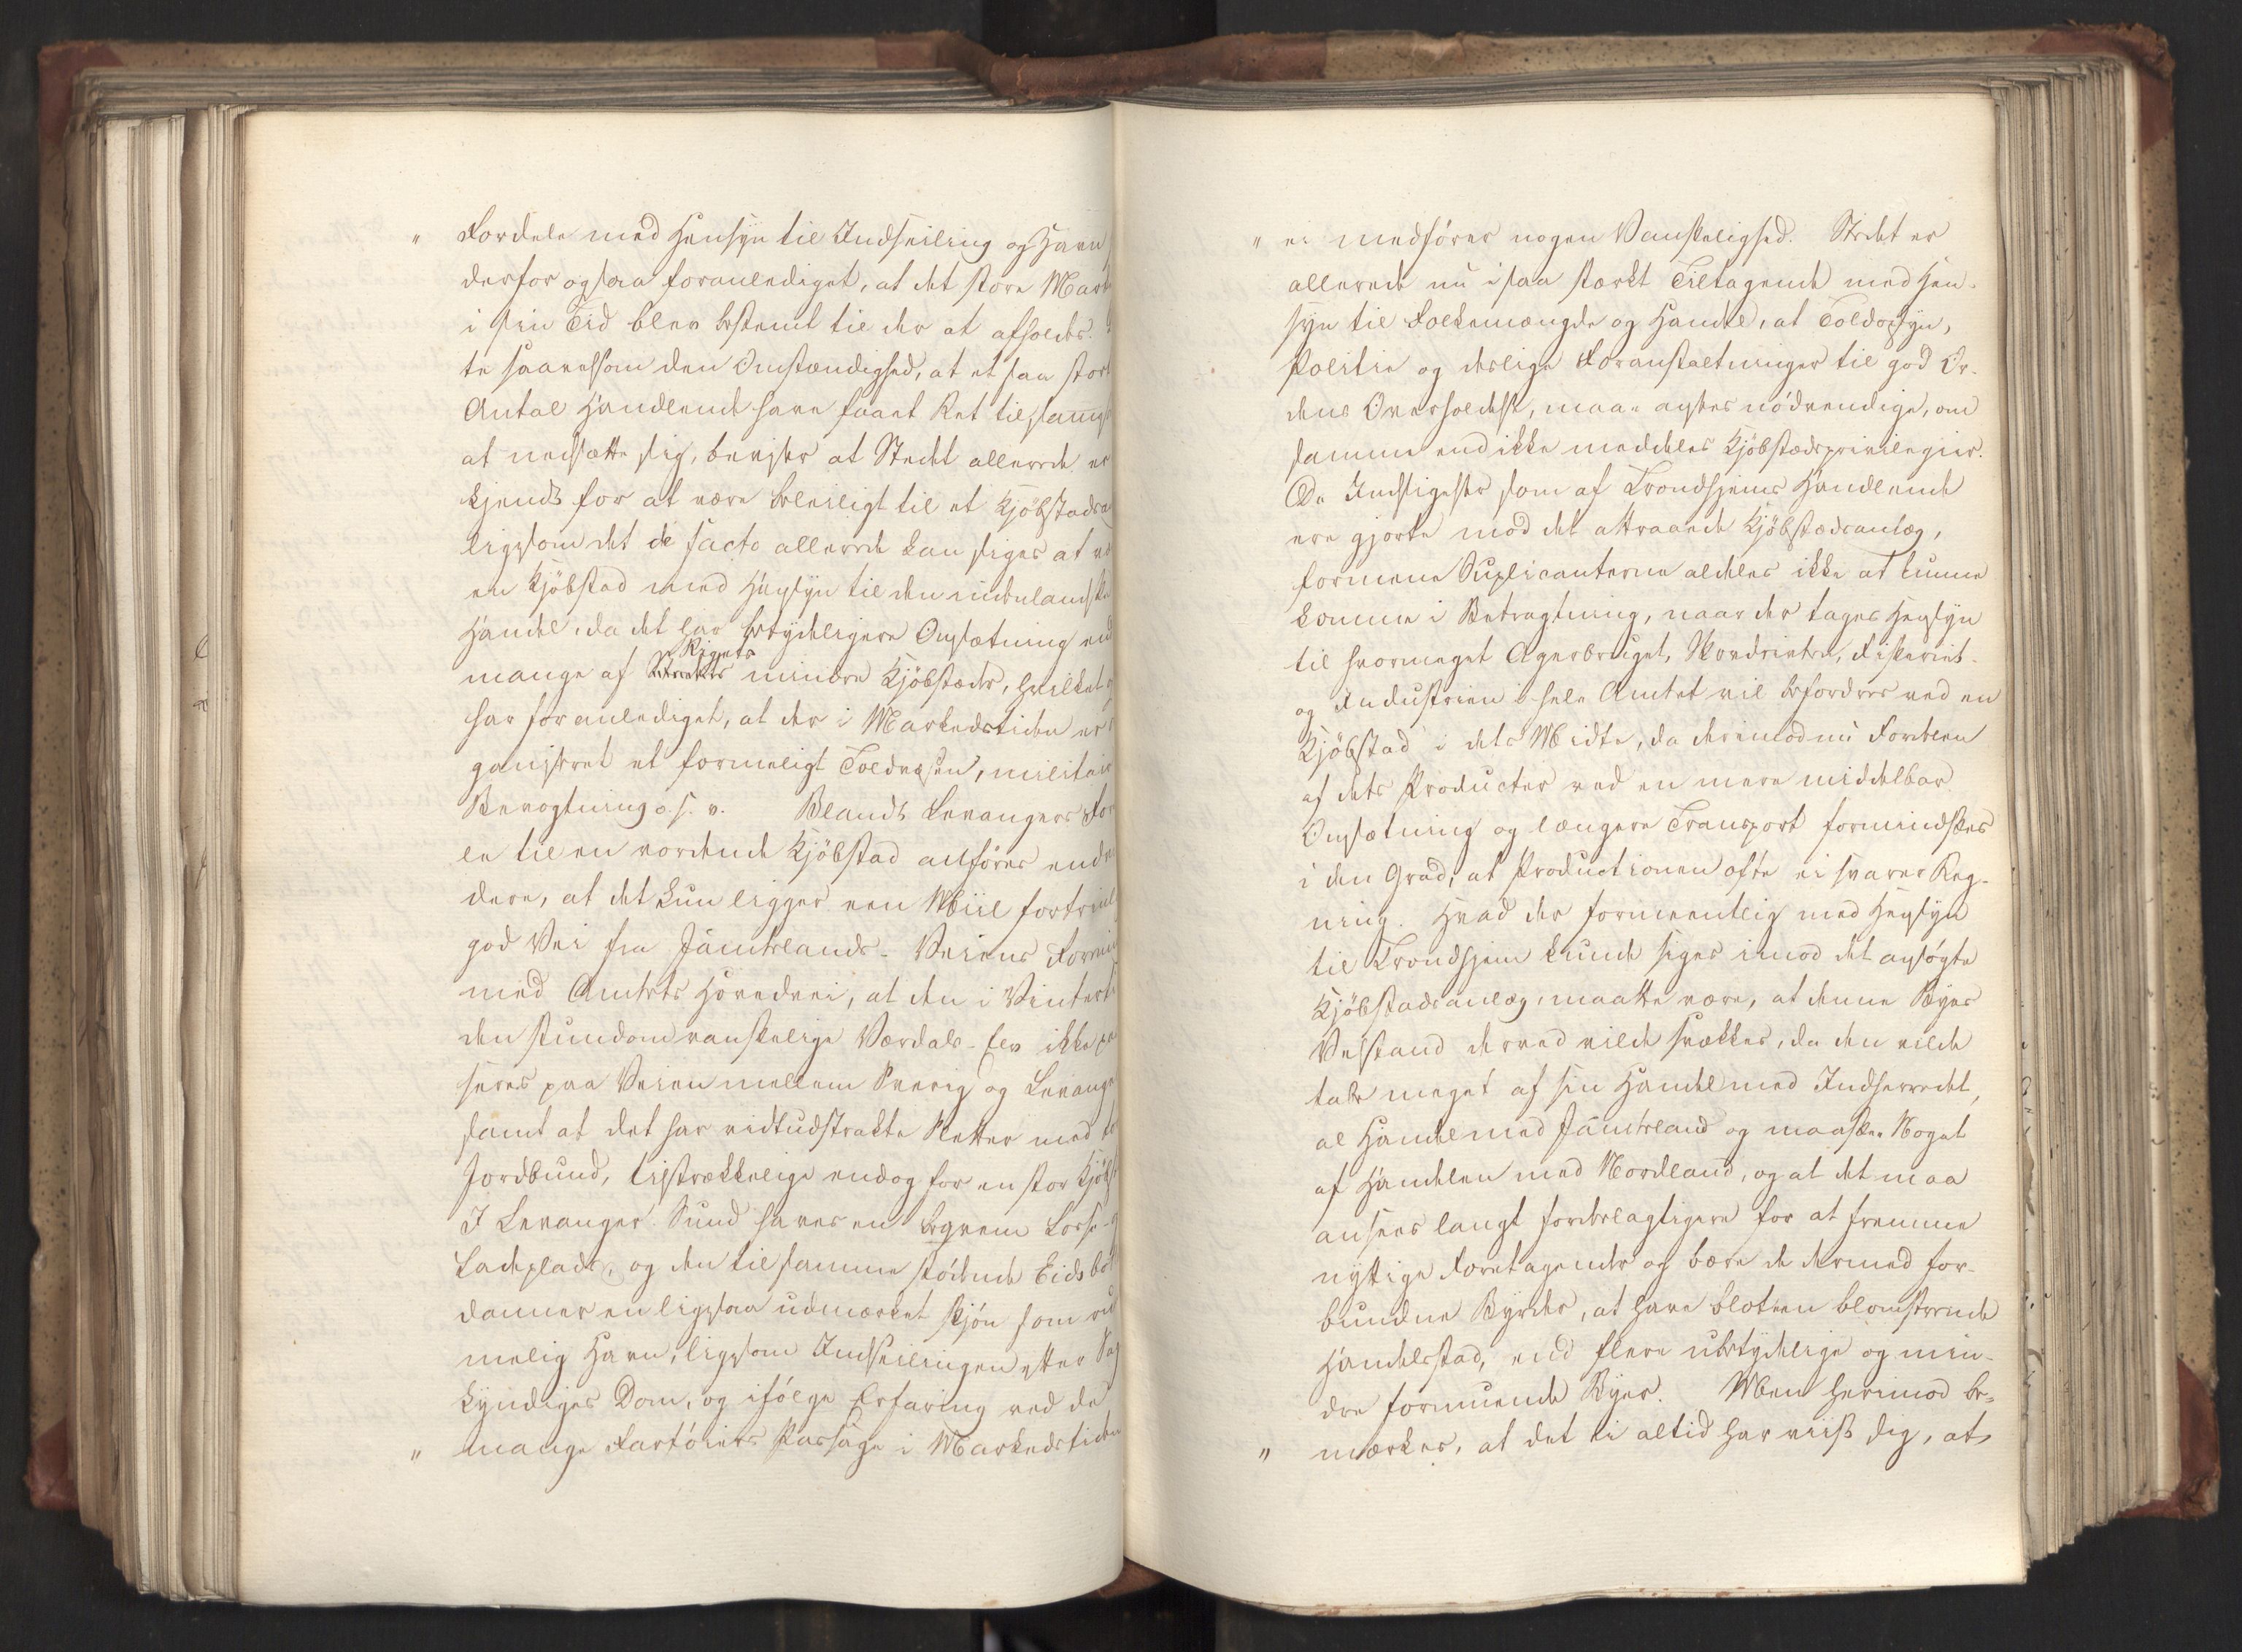 " Fordele med Hensyn til Indseiling og Havn
derfor ogsaa foranlediget, at det store Mark
i sin Tid blev bestemt til der at afholdes.
te saavelsom den Omstændighed, at et saa stort
Antal Handlende have faaet Ret til samst
at nedsætte sig, beviser at Stedet allerede er
kjendt for at være beleiligt til et Kjöbstadsa
ligesom det de facto allerede kan siges at væ
en Kjöbstad med Hensyn til den indenlandske
Handel, da det har betydeligere Omsætning end
mange af Rigets mindre Kjöbstæder, hvilket
har foranlediget, at der i Markedstiden er
ganiseret et formeligt Toldvæsen, militair
Bevogtning o. s. v. Blandt Levangers For
le til en vordende Kjöbstad anföres endvi
dere, at det kun ligger een Miil fortrinl
god Vei fra Jämtelands-Veiens Foreni
med Amtets Hovedvei, at den i Vinterti
den stundom vanskelige Værdals-Elv ikke pa
seres paa Veien mellem Sverig og Levange
samt at det har vidtudstrakte Sletter med
Jordbund, tilstrækkelige endog for en stor Kjöbst
I Levanger-Sund haves en beqvem Losse-
Ladeplads, og den til samme stödende Eidsbot
danner en ligesaa udmærket skjön som
melig Havn, ligesom Indseilingen efter Sag
kyndiges Dom, og ifölge Erfaring ved de
" mange Fartöiers Passage i Markedstiden
" ei medförer nogen Vanskelighed. Stedet er
allerede nu i saa stærkt Tiltagende med Hen-
syn til Folkemængde og Handel, at Toldopsyn,
Politie og deslige Foranstaltninger til god Or-
dens Overholdelse, maae agtes nödvendige, om
samme end ikke meddeles Kjöbstadsprivilegier.
De Indsigelser som af Trondhjems Handlende
ere gjorte mod det attraaede Kjöbstadsanlæg,
formene Suplicanterne aldeles ikke at kunne
komme i Betragtning, naar der tages Hensyn
til hvormeget Agerbruget, Skovdriften, Fiskeriet
og Industrien i hele Amtet vil befordres ved en
Kjöbstad i dets Midte, da derimod nu Fordelen
af dets Producter ved en mere middelbar
Omsætning og længere Transport formindskes
i den Grad, at Productionen ofte ei svarer Reg-
ning. Hvad der formeentlig med Hensyn
til Trondhjem kunde siges imod det ansögte
Kjöbstadsanlæg, maatte være, at denne Byes
Velstand derved vilde svækkes, da den vilde
tabe meget af sin Handel med Indherredet,
al Handel med Jämteland og maaskee Noget
af Handelen med Nordland, og at det maa
ansees langt fordeelagtigere for at fremme
nyttige Foretagender og bære de dermed for-
bundne Byrder, at have blot een blomstrende
Handelsstad, end flere ubetydelige og min-
dre formuende Byer. Men herimod be-
" mærkes, at det ei altid har viist sig, at